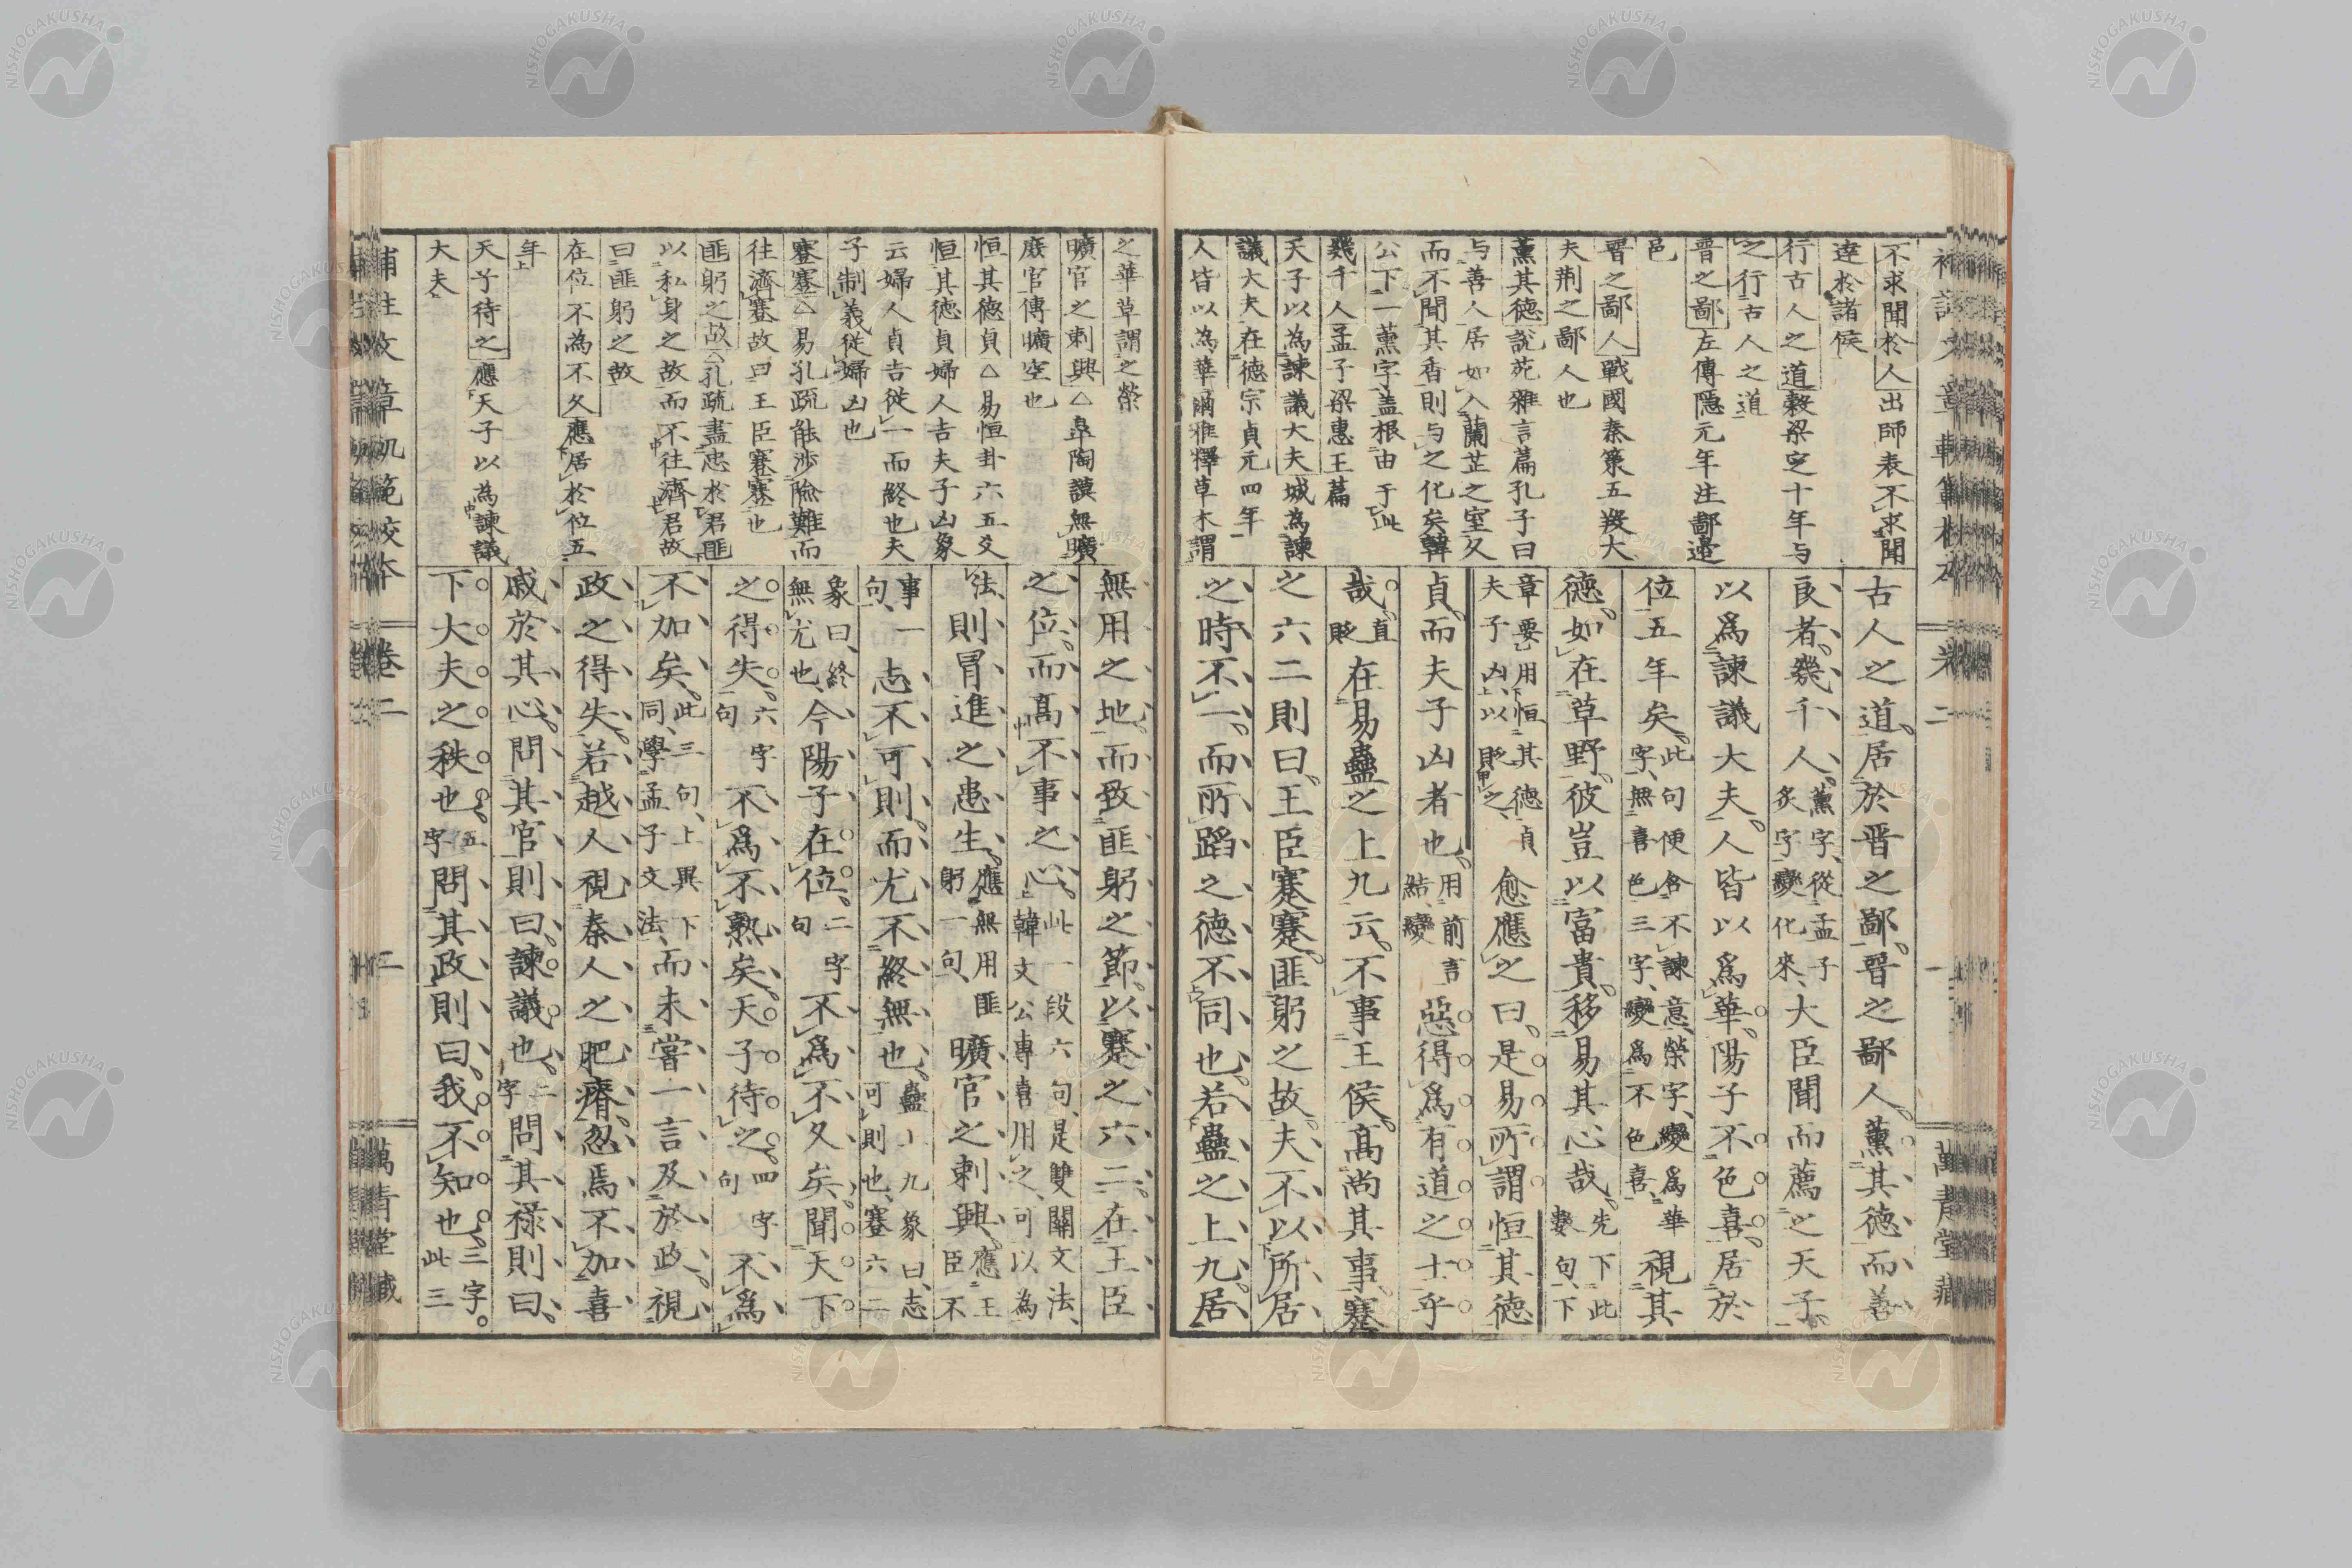 不求聞於人出師表不求聞
達於諸侯
行古人之道穀梁定十年与
之行古人之道
晋之鄙左傳隠元年注鄙邊
邑
晋之鄙人戰國秦策五羖大
夫荆之鄙人也
薰其德説苑雜言篇孔子曰
与善人居如入蘭芷之室久
而不聞其香則与之化矣韓
公下一薰字盖根由于此
幾千人孟子梁惠王篇
天子以為諫議大夫城為諫
議大夫在德宗貞元四年
人皆以為華爾雅釋草木謂
古人之道、居於晋之鄙。晋之鄙人。薰其德而善
良者、幾千人。薰字、從孟子炙字變化來、大臣聞而薦之天子。
以爲諫議大夫。人皆以爲華。陽子不色喜。居於
位五年矣。此句便含不諫意、榮字、變爲華字、無喜色三字、變爲不色喜、視其
德。如在草野。彼豈以富貴。移易其心哉。先下此數句、下
章要用恒其德貞夫子凶、以貶之、愈應之曰。是易所謂恒其德
貞。而夫子凶者也。用前言結、變惡得爲有道之士乎
哉。直貶在易蠱之上九云。不事王侯。高尚其事、蹇
之六二則曰。王臣蹇蹇。匪躬之故。夫不以所居
之時不一。而所蹈之德不同也。若蠱之上九。居
卷二
萬青堂藏
之華草謂之榮
曠官之刺興△皐陶謨無曠
庶官傳曠空也
恒其德貞△易恒卦六五爻
恒其德貞婦人吉夫子凶象
云婦人貞吉從一而終也夫
子制義從婦凶也
蹇蹇△易孔疏能渉險難而
往濟蹇故曰王臣蹇蹇也
匪躬之故△孔疏盡忠於君匪
以私身之故而不往濟君故
曰匪躬之故
在位不為不久應居於位五
年
天子待之應天子以為諫議
大夫
無用之地。而致匪躬之節。以蹇之六二。在王臣
之位。而高不事之心。此一段六句、是雙關文法、韓文公專喜用之、可以為
法、則冒進之患生。應無用匪躬一句、曠官之刺興。應王臣不
事一句、志不可則。而尤不終無也。蠱上九象曰、志可則也、蹇六二
象曰、終無尤也、今陽子在位、二字句不爲不久矣。聞天下
之得失、六字句不爲不熟矣。天子待之、四字句不爲
不加矣。此三句、上異下同、學孟子文法、而未嘗一言及於政。視
政之得失。若越人視秦人之肥瘠。忽焉不加喜
戚於其心。問其官則曰。諫議也。二字問其禄則曰。
下大夫之秩也。五字問其政則曰。我不知也。三字。此三
卷二
萬青堂藏